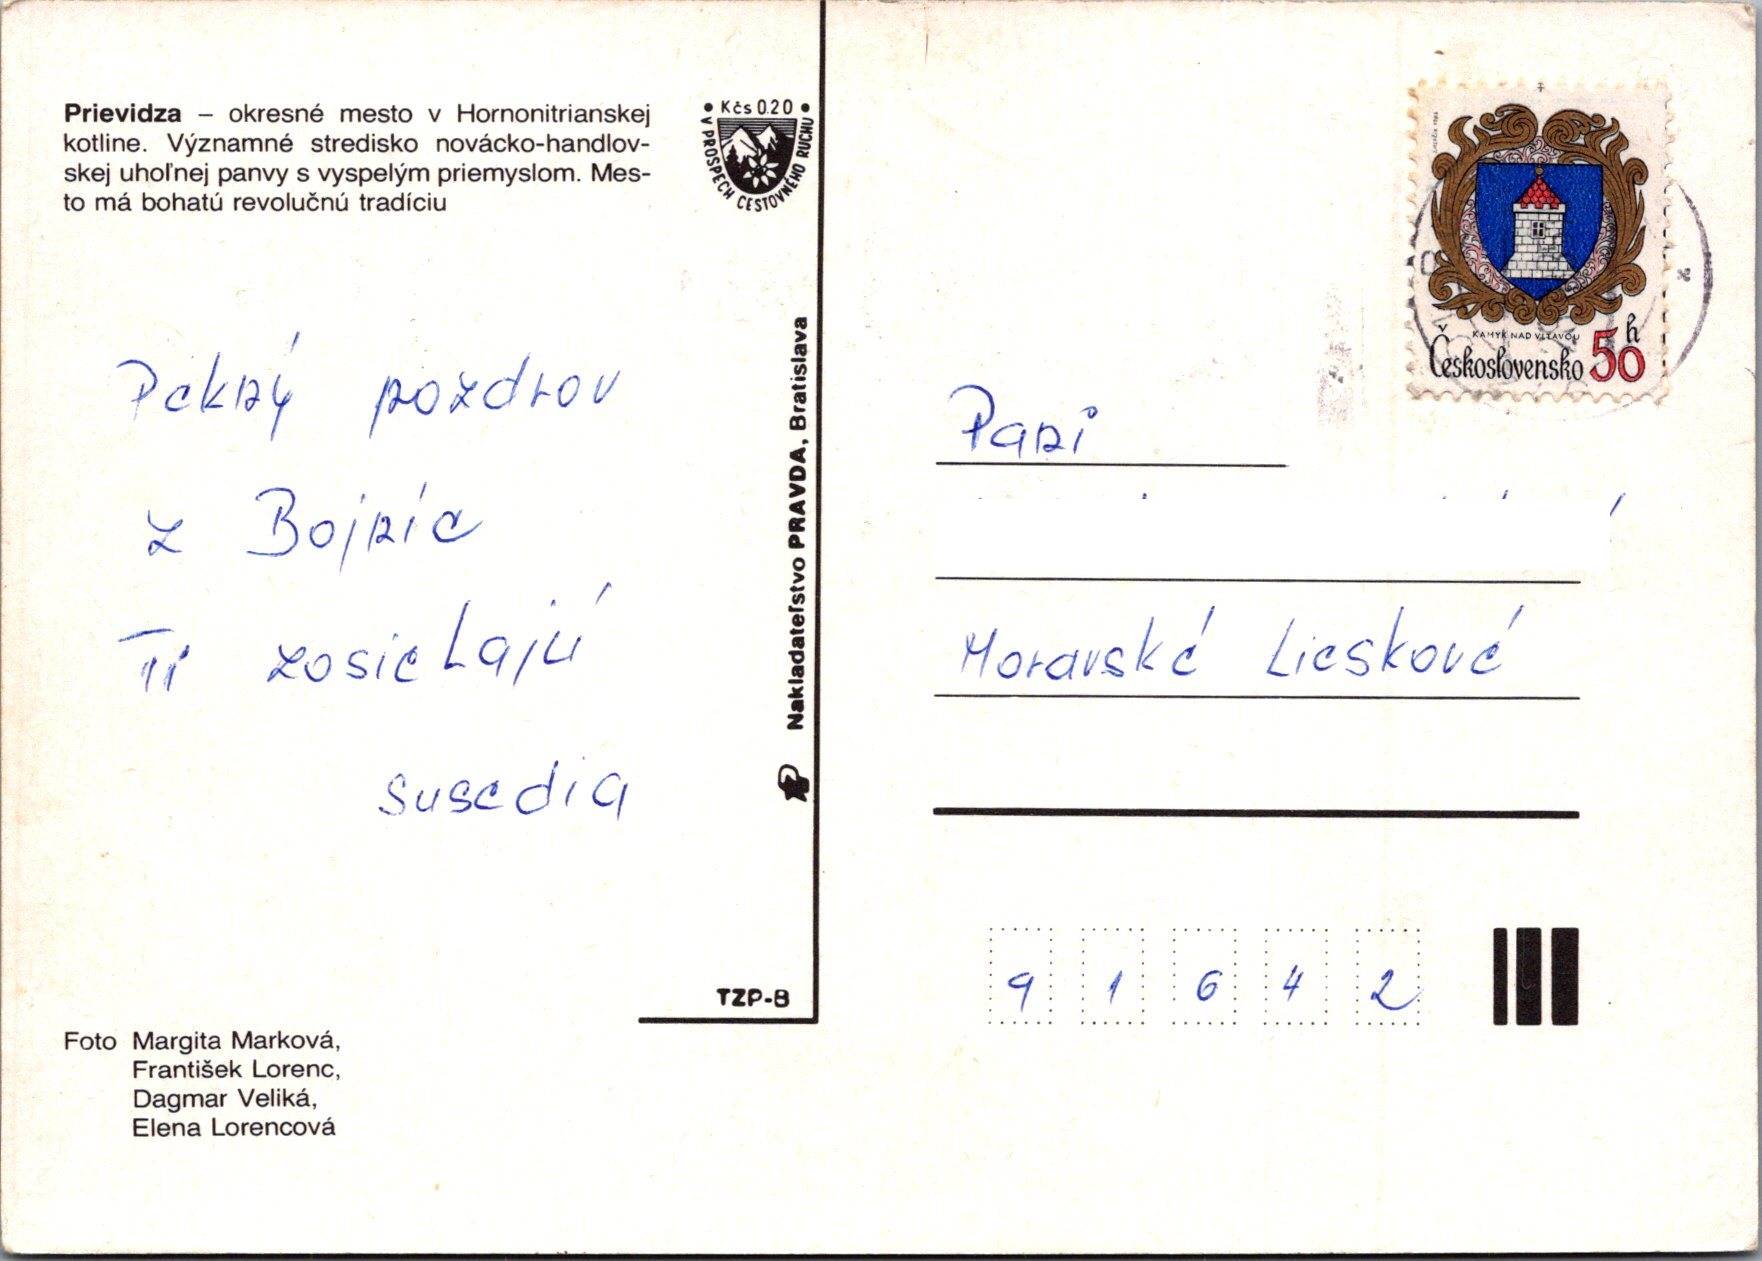 Prievidza – okresné mesto v Hornonitrianskej
kotline. Významné stredisko novácko-handlov-
skej uhoľnej panvy s vyspelým priemyslom. Mes-
to má bohatú revolučnú tradíciu
• Kčs 0.20 •
V PROSPECH CESTOVNÉHO RUCHU
Pekný pozdrov
z Bojníc
Ti zosielajú
susedia
Nakladateľstvo PRAVDA, Bratislava
TZP-8
Foto Margita Marková,
František Lorenc,
Dagmar Veliká,
Elena Lorencová
KAMÝK NAD VLTAVOU
Československo 50 h
Pani
Moravské Lieskové
9 1 6 4 2